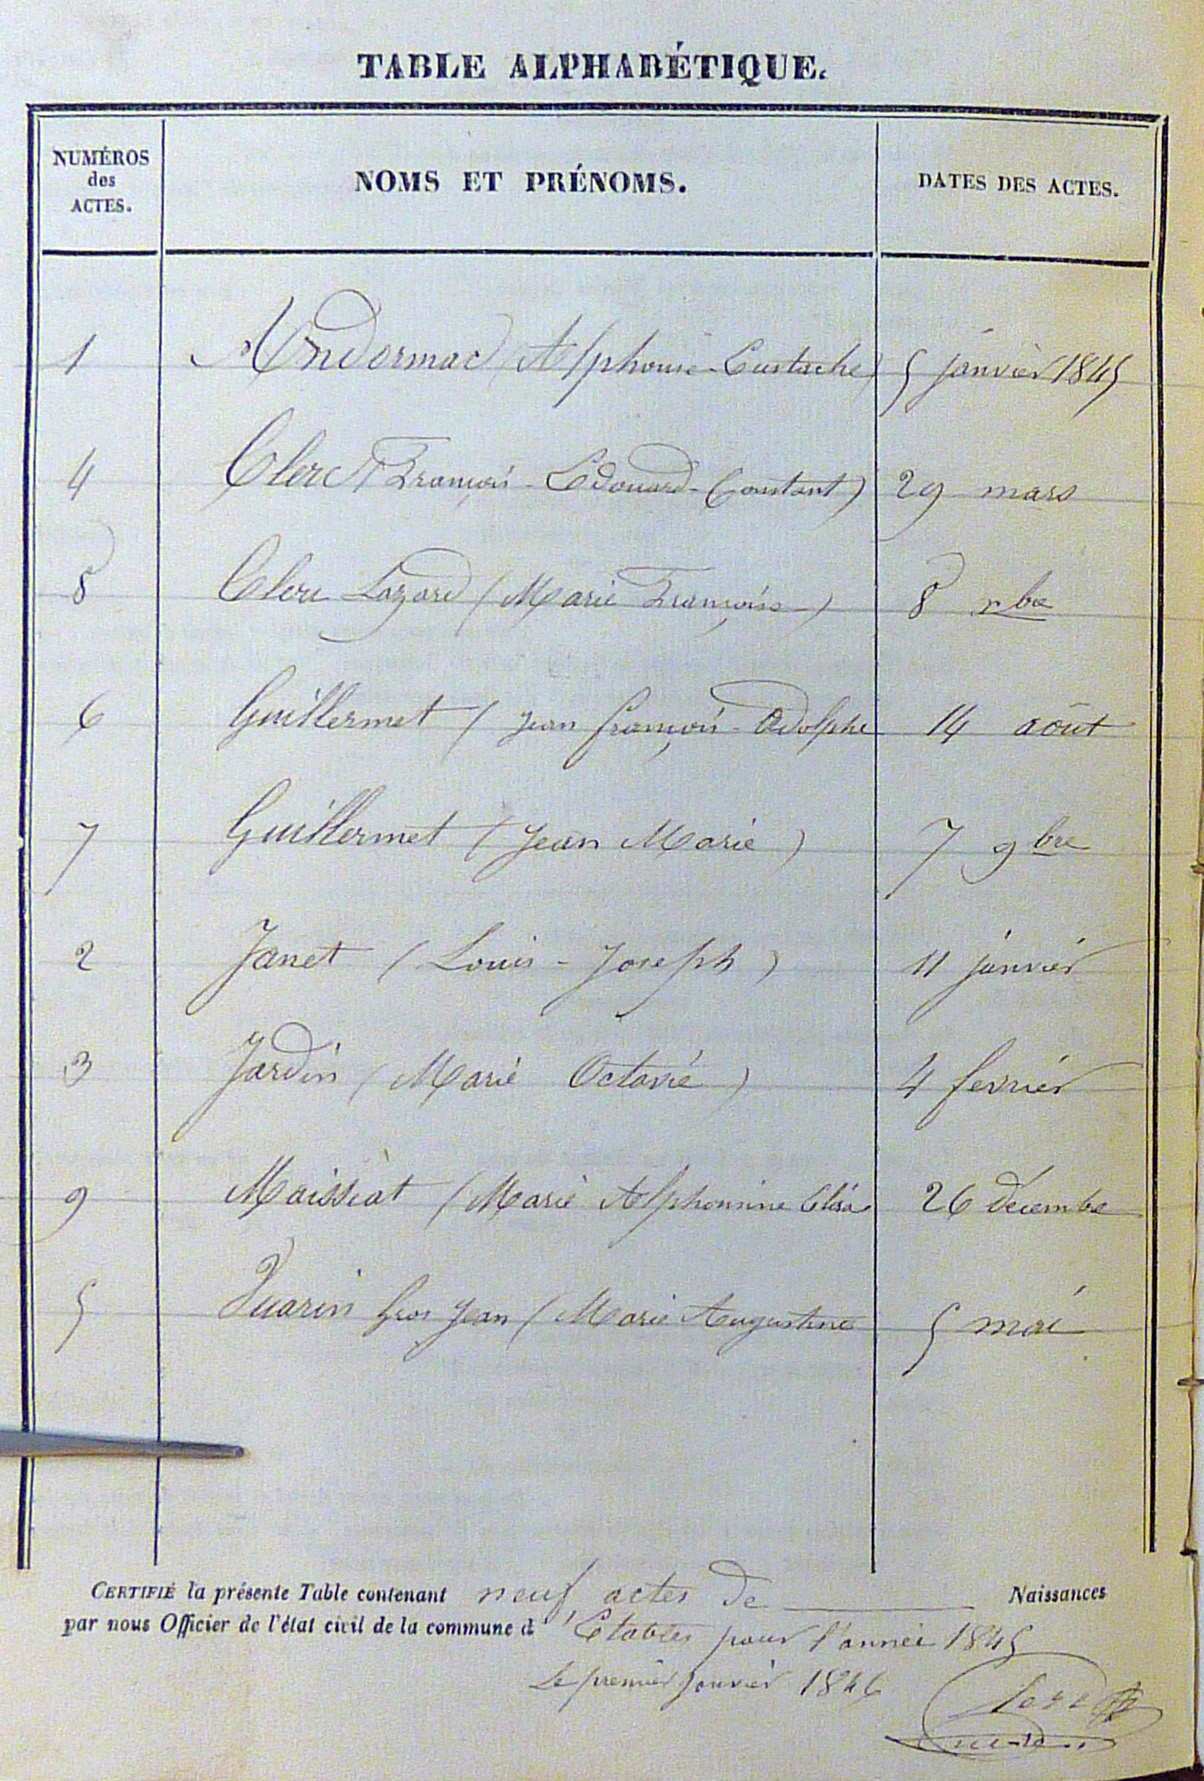 TABLE ALPHABÉTIQUE.
NUMÉROS des ACTES. NOMS ET PRÉNOMS. DATES DES ACTES.
1 Andermad (Alphonse-Eustache) 5 janvier 1845
4 Clerc (François-Edouard-Constant) 29 mars
8 Clerc Lazard (Marie Françoise) 8 xbre
6 Guillermet (Jean françois-Adolphe 14 août
7 Guillermet (Jean Marie) 7 9bre
2 Janet (Louis-Joseph) 11 janvier
3 Jardin (Marie Octavie) 4 fevrier
9 Maissiat (Marie Alphonsine Elisa 26 décembre
5 Vuarin Gros Jean (Marie Augustine 5 mai
CERTIFIÉ la présente Table contenant neuf actes de Naissances
par nous Officier de l'état civil de la commune d Etables pour l'année 1845
Le premier janvier 1846